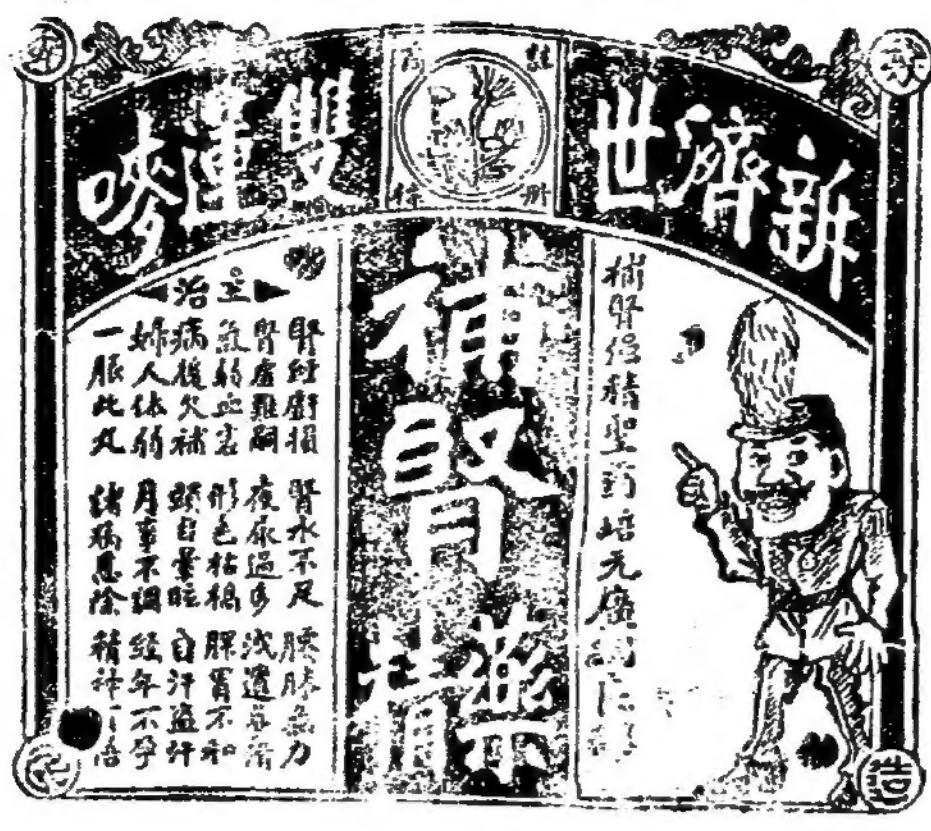 濟世
註册商標
雙蓮嘜
補腎
補腎保精聖葯 培元廣嗣
主治
腎經虧損 腎水不足 腰膝無力
腎虛難嗣 夜尿過多
氣弱血 形色枯槁 脾胃不和
病後欠補 頭目暈眩 自汗盜汗
婦人体弱 月事不調 經年不孕
一服此丸 諸病悉除 精神倍
造